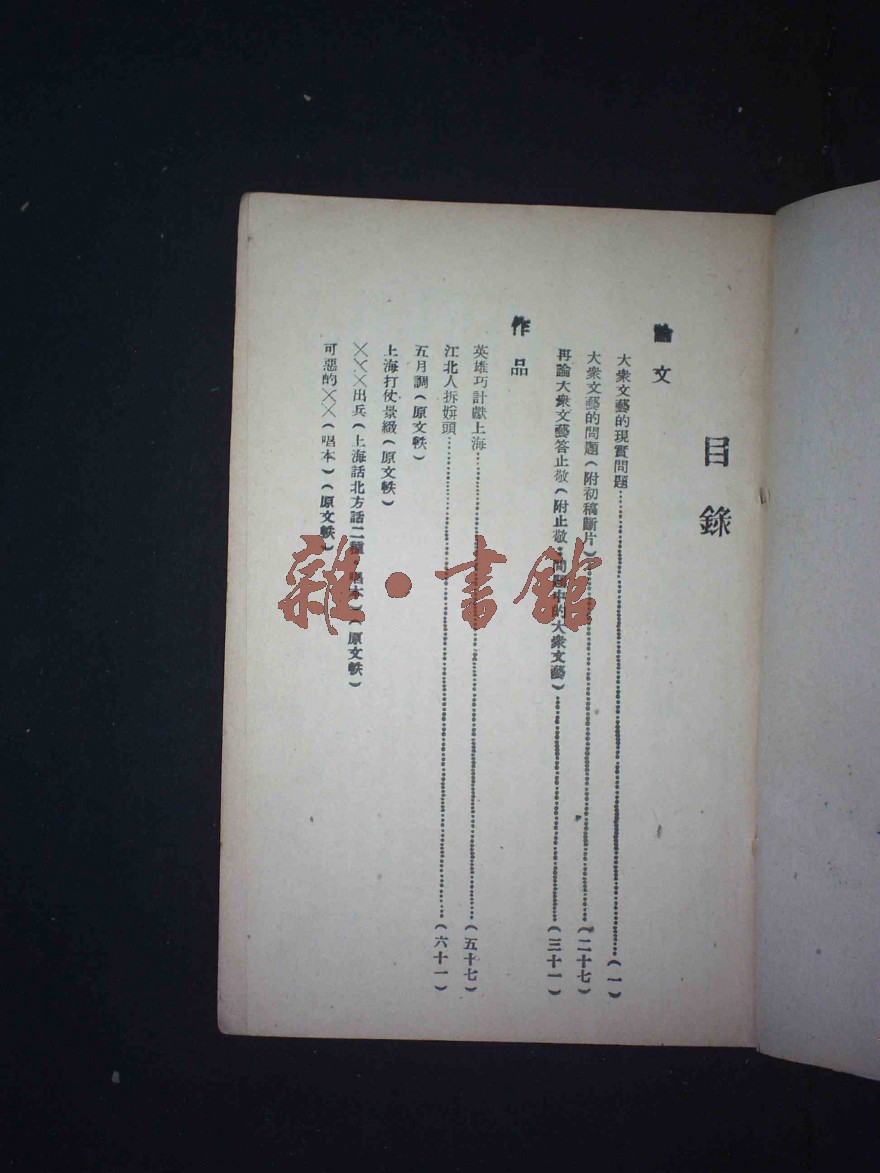 目錄
論文
大衆文藝的現實問題……(一)
大衆文藝的問題(附初稿斷片)……(二十七)
再論大衆文藝答止敬(附止敬:問題中的大衆文藝)……(三十一)
作品
英雄巧計獻上海……(五十七)
江北人拆姘頭……(六十一)
五月調(原文軼)
上海打仗景緻(原文軼)
×××出兵(上海話北方話二種,唱本)(原文軼)
可惡的××(唱本)(原文軼)
雜·書館